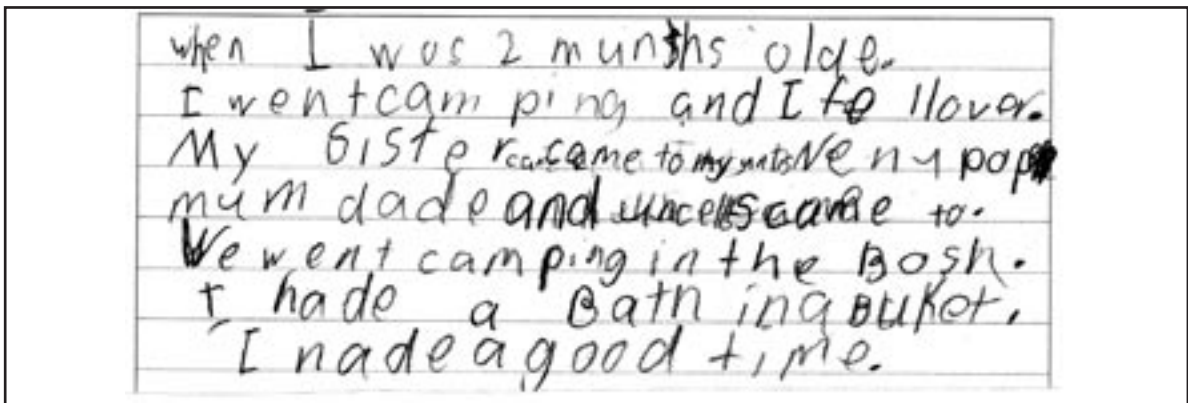 when I was 2 munths olde.
I went cam ping and I fe llover.
My Sister came to my Neny pop
mum dade and uncells came to.
We went camping in the Bosh.
I hade a Bath in a Buket.
I hade a good time.